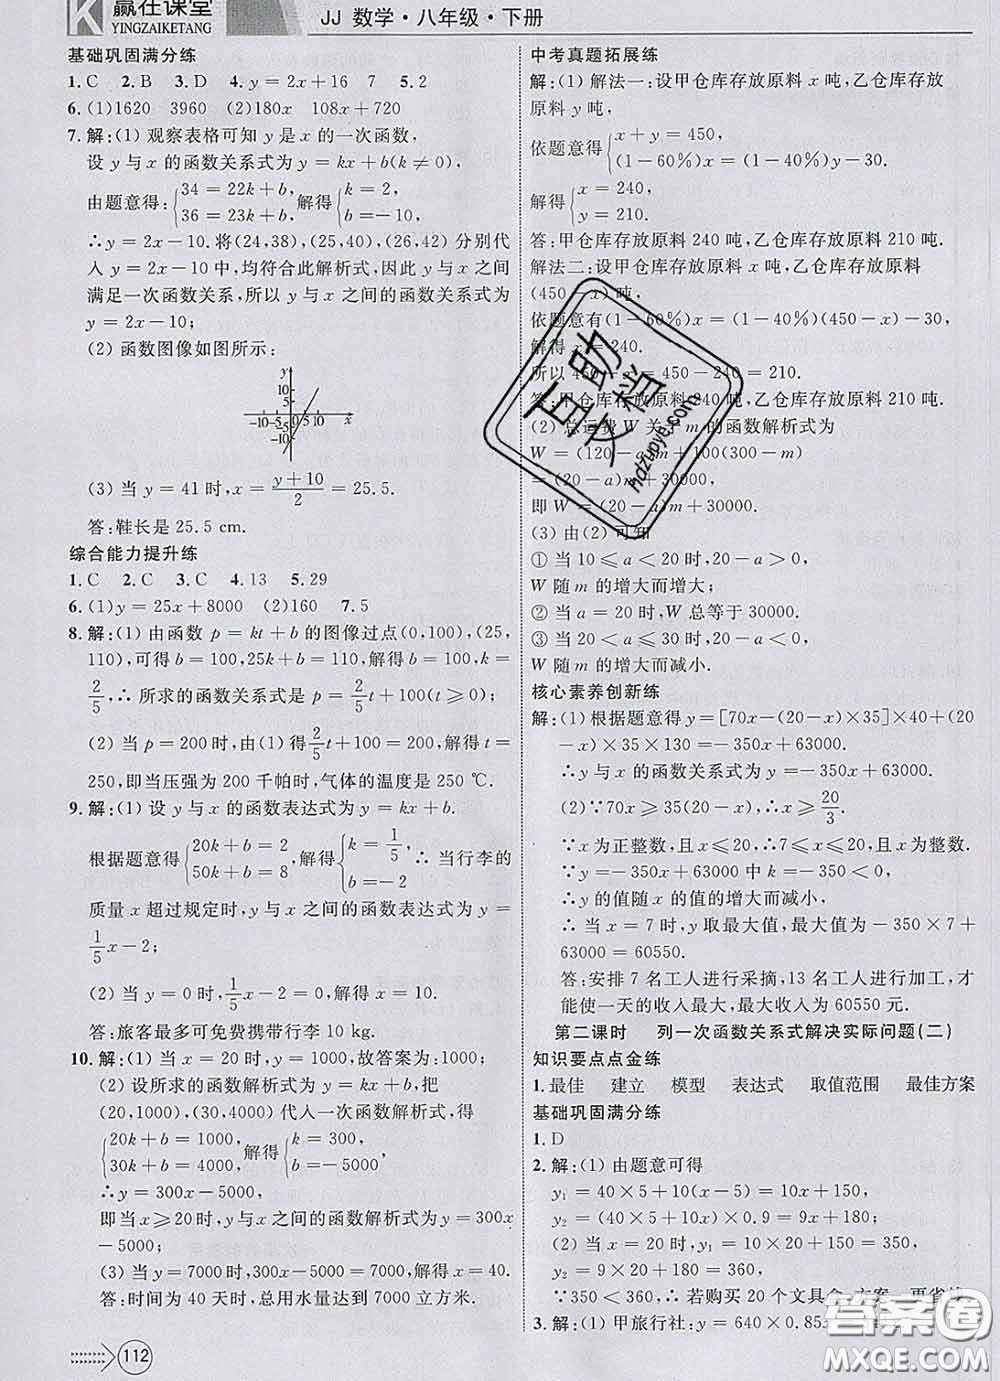 赢在课堂
YINGZAIKETANG
JJ 数学·八年级·下册
基础巩固满分练
1.C 2.B 3.D 4.y=2x+16 7 5.2
6.(1)1620 3960 (2)180x 108x+720
7.解:(1)观察表格可知 y 是 x 的一次函数,
设 y 与 x 的函数关系式为 y=kx+b(k≠0),
由题意得:{34=22k+b, 36=23k+b, 解得{k=2, b=-10,
∴y=2x-10.将(24,38),(25,40),(26,42)分别代
入 y=2x-10 中,均符合此解析式,因此 y 与 x 之间
满足一次函数关系,所以 y 与 x 之间的函数关系式为
y=2x-10;
(2)函数图像如图所示:
y
10
5
-10 -5 0 5 10 x
-5
-10
(3)当 y=41 时,x=(y+10)/2=25.5.
答:鞋长是 25.5 cm.
综合能力提升练
1.C 2.C 3.C 4.13 5.29
6.(1)y=25x+8000 (2)160 7.5
8.解:(1)由函数 p=kt+b 的图像过点(0,100),(25,
110),可得 b=100,25k+b=110,解得 b=100,k=
2/5,∴所求的函数关系式是 p=2/5t+100(t≥0);
(2)当 p=200 时,由(1)得2/5t+100=200,解得 t=
250,即当压强为 200 千帕时,气体的温度是 250 ℃.
9.解:(1)设 y 与 x 的函数表达式为 y=kx+b.
根据题意得{20k+b=2, 50k+b=8, 解得{k=1/5, b=-2, ∴当行李的
质量 x 超过规定时,y 与 x 之间的函数表达式为 y=
1/5x-2;
(2)当 y=0 时,1/5x-2=0,解得 x=10.
答:旅客最多可免费携带行李 10 kg.
10.解:(1)当 x=20 时,y=1000,故答案为:1000;
(2)设所求的函数解析式为 y=kx+b,把
(20,1000),(30,4000)代入一次函数解析式,得
{20k+b=1000, 30k+b=4000, 解得{k=300, b=-5000,
∴y=300x-5000,
即当 x≥20 时,y 与 x 之间的函数解析式为 y=300x
-5000;
(3)当 y=7000 时,300x-5000=7000,解得 x=40.
答:时间为 40 天时,总用水量达到 7000 立方米.
112
中考真题拓展练
解:(1)解法一:设甲仓库存放原料 x 吨,乙仓库存放
原料 y 吨,
依题意得{x+y=450, (1-60%)x=(1-40%)y-30.
解得{x=240, y=210.
答:甲仓库存放原料 240 吨,乙仓库存放原料 210 吨.
解法二:设甲仓库存放原料 x 吨,乙仓库存放原料
(450-x)吨,
依题意有(1-60%)x=(1-40%)(450-x)-30,
解得 x=240.
所以 450-x=450-240=210.
答:甲仓库存放原料 240 吨,乙仓库存放原料 210 吨.
(2)总运费 W 关于 m 的函数解析式为
W=(120-a)m+100(300-m)
W=(20-a)m+30000,
即 W=(20-a)m+30000.
(3)由(2)可知
①当 10≤a<20 时,20-a>0,
W 随 m 的增大而增大;
②当 a=20 时,W 总等于 30000.
③当 20<a≤30 时,20-a<0,
W 随 m 的增大而减小.
核心素养创新练
解:(1)根据题意得 y=[70x-(20-x)×35]×40+(20
-x)×35×130=-350x+63000.
∴y 与 x 的函数关系式为 y=-350x+63000.
(2)∵70x≥35(20-x),∴x≥20/3.
∵x 为正整数,且 x≤20,∴7≤x≤20,且 x 为正整数.
∵y=-350x+63000 中 k=-350<0,
∴y 的值随 x 的值的增大而减小,
∴当 x=7 时,y 取最大值,最大值为-350×7+
63000=60550.
答:安排 7 名工人进行采摘,13 名工人进行加工,才
能使一天的收入最大,最大收入为 60550 元.
第二课时 列一次函数关系式解决实际问题(二)
知识要点点金练
1.最佳 建立 模型 表达式 取值范围 最佳方案
基础巩固满分练
1.D
2.解:(1)由题意可得
y₁=40×5+10(x-5)=10x+150,
y₂=(40×5+10x)×0.9=9x+180;
(2)当 x=20 时,y₁=10×20+150=350,
y₂=9×20+180=360,
∵350<360,∴若购买 20 个文具盒,方案一更省钱
3.解:(1)甲旅行社:y=640×0.85x
互助文档
hdzuoye.com
答案圈
MXQE.COM